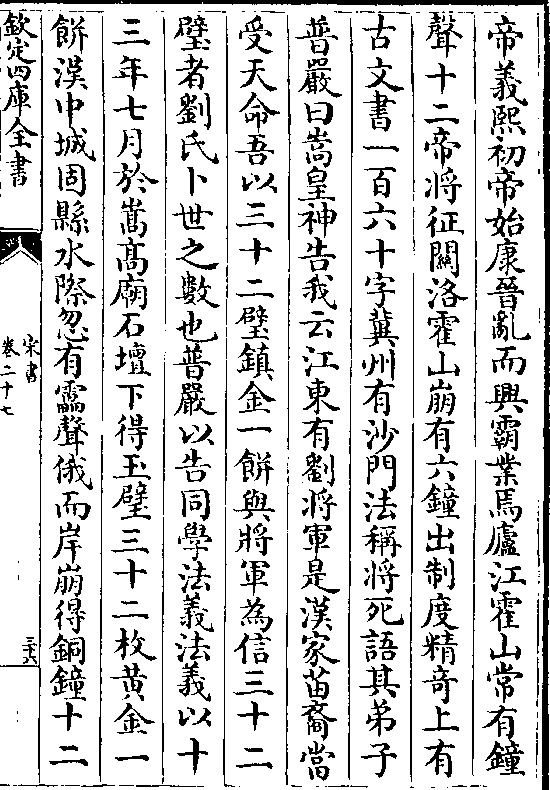 帝義熙初帝始康晉亂而興霸業焉廬江霍山常有鐘
聲十二帝將征關洛霍山崩有六鐘出制度精奇上有
古文書一百六十字冀州有沙門法稱將死語其弟子
普嚴曰嵩皇神告我云江東有劉將軍是漢家苗裔當
受天命吾以三十二璧鎮金一餅與將軍為信三十二
璧者劉氏卜世之數也普嚴以告同學法義法義以十
三年七月於嵩高廟石壇下得玉璧三十二枚黃金一
餅漢中城固縣水際忽有靁聲俄而岸崩得銅鐘十二
欽定四庫全書
宋書
卷二十七
三六